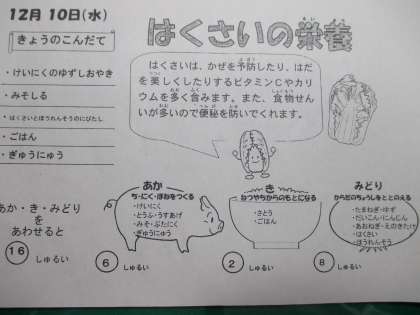 12月 10日(水)
はくさいの栄養
きょうのこんだて
・けいにくのゆずしおやき
・みそしる
・はくさいとほうれんそうのにびたし
・ごはん
・ぎゅうにゅう
はくさいは、かぜを予防したり、はだ
を美しくしたりするビタミンCやカ
リウムを多く含みます。また、食物せん
いが多いので便秘を防いでくれます。
あか・き・みどり
を
あわせると
16 しゅるい
あか
ち・にく・ほねをつくる
・けいにく
・とうふ・うすあげ
・みそ・ぶたにく
・ぎゅうにゅう
6 しゅるい
き
ねつやちからのもとになる
・さとう
・ごはん
2 しゅるい
みどり
からだのちょうしをととのえる
・たまねぎ・ゆず
・だいこん・にんじん
・あおねぎ・えのきたけ
・はくさい
・ほうれんそう
8 しゅるい